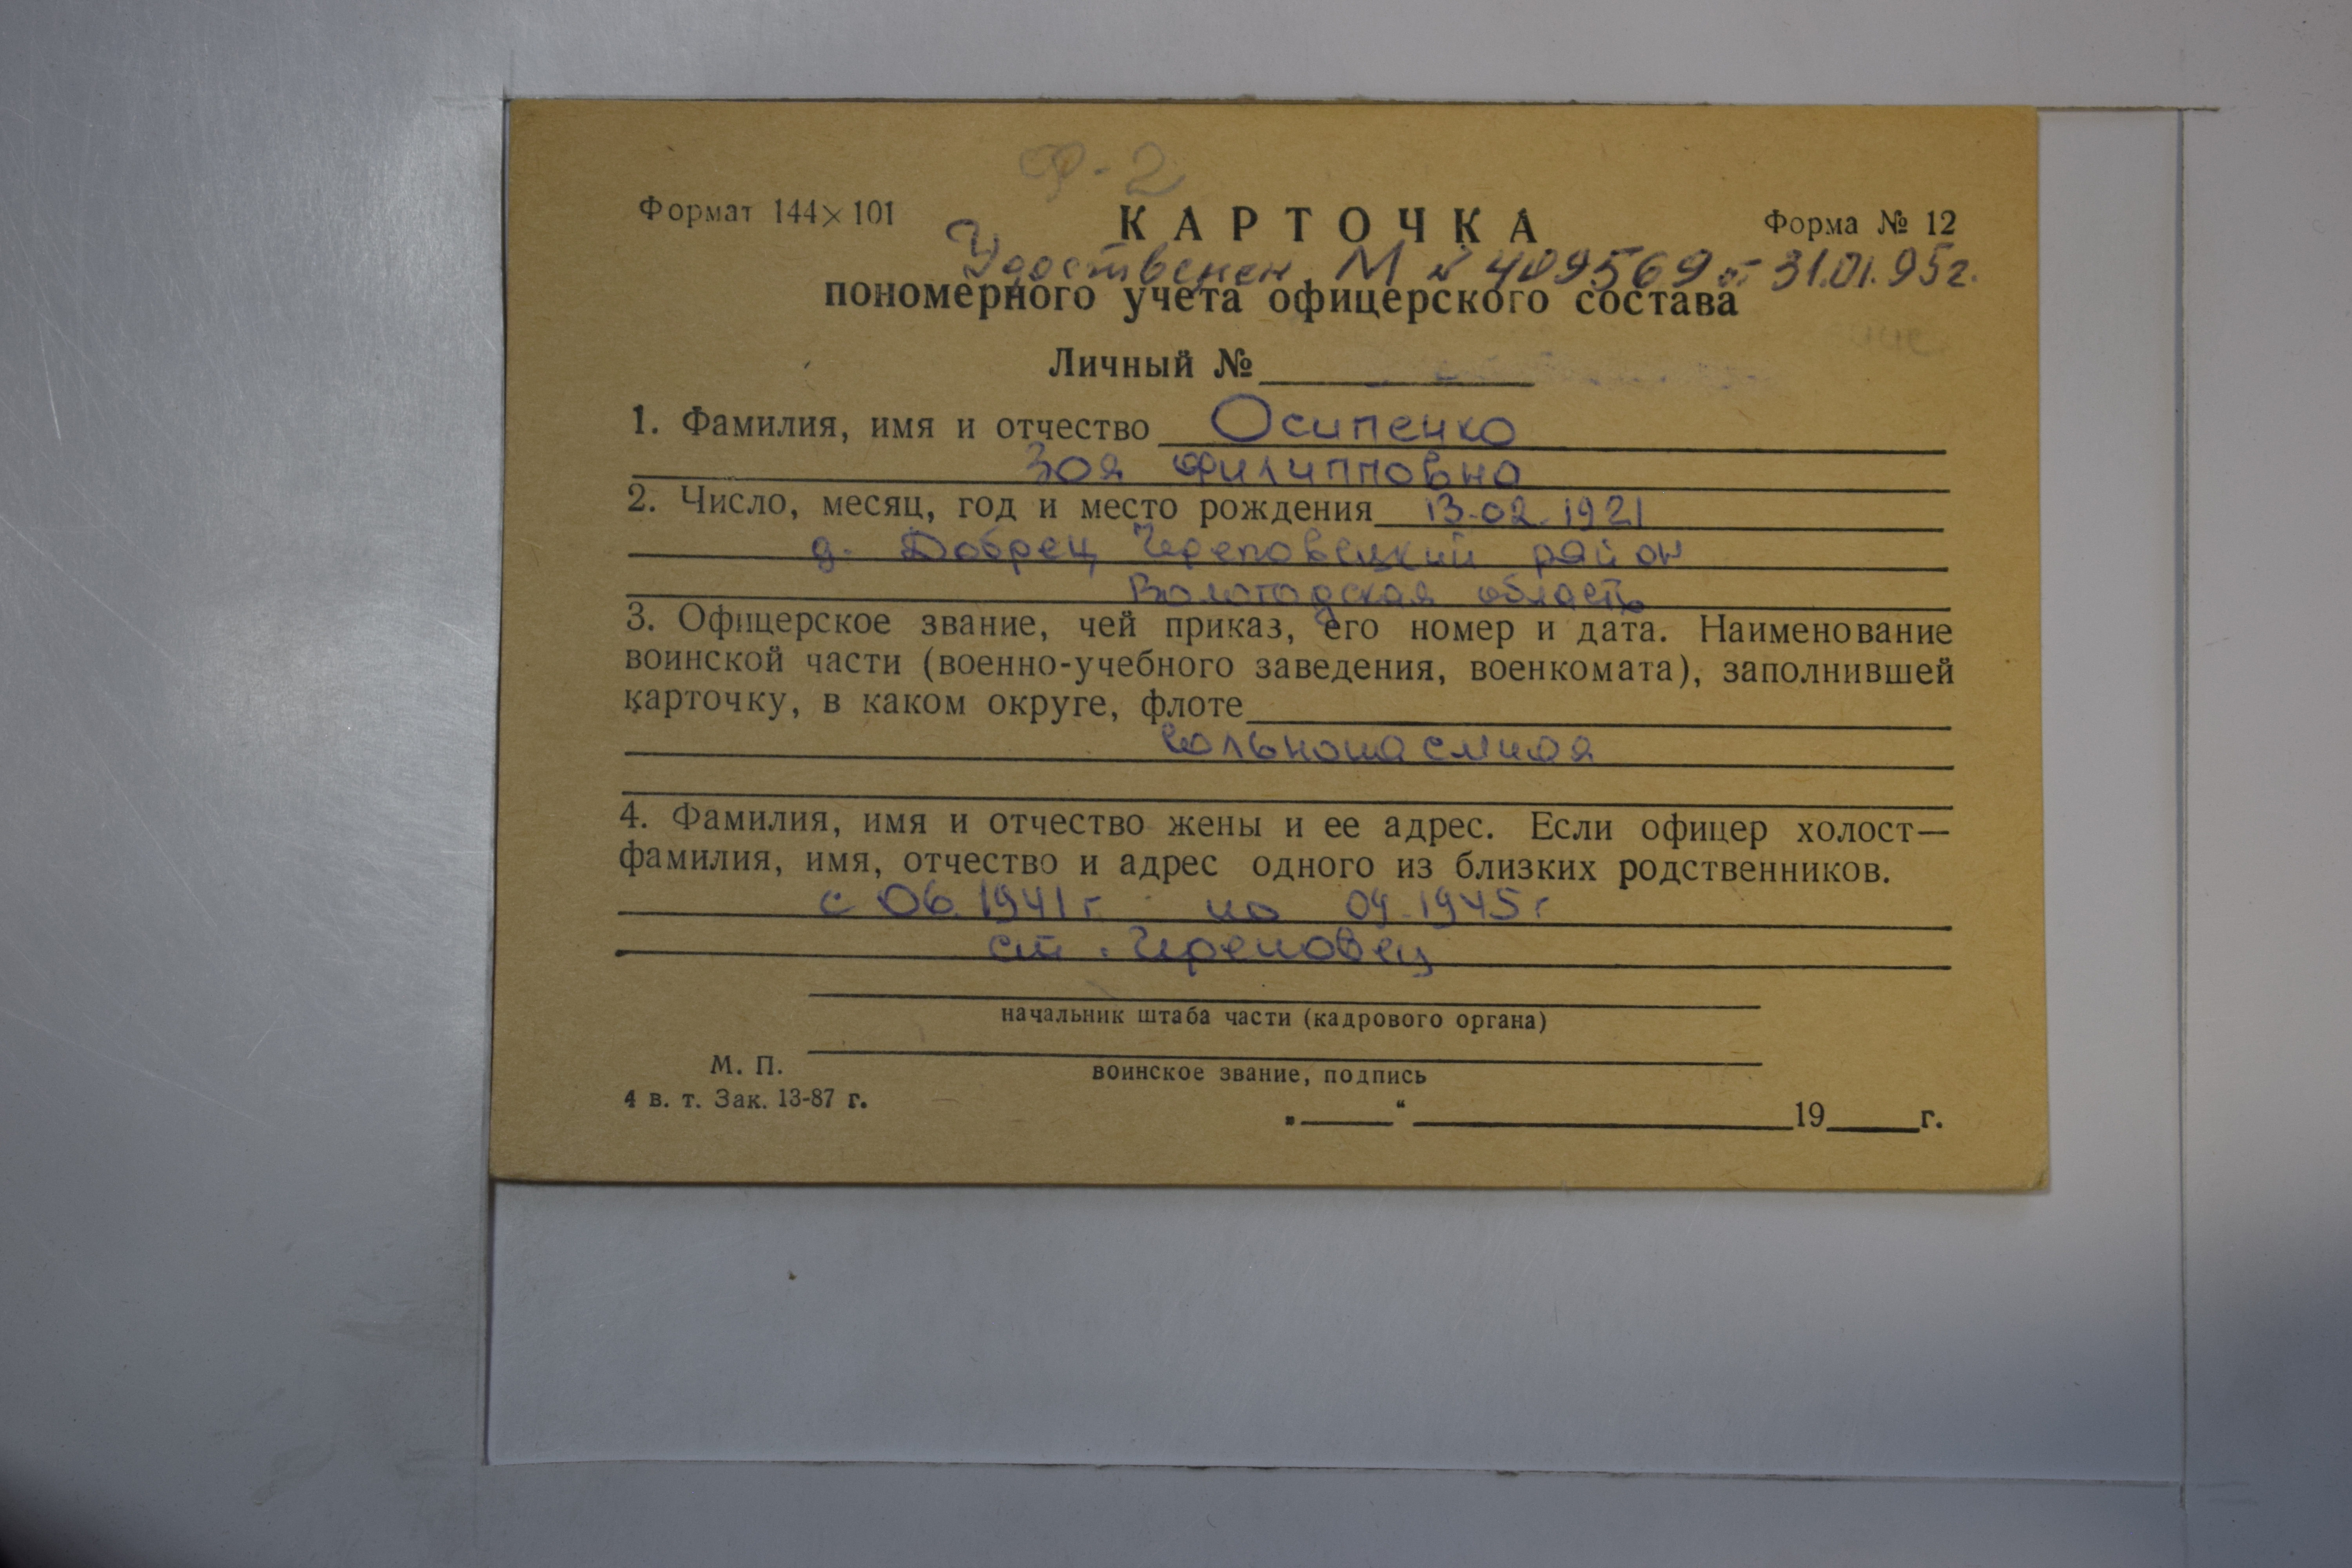 Ф-2
Формат 144×101
КАРТОЧКА
Форма № 12
Удоственен М № 409569 от 31.01.95г.
пономерного учета офицерского состава
Личный №
1. Фамилия, имя и отчество Осипенко
Зоя Филипповна
2. Число, месяц, год и место рождения 13.02.1921
д. Добрец Череповецкий район
Вологодская область
3. Офицерское звание, чей приказ, его номер и дата. Наименование
воинской части (военно-учебного заведения, военкомата), заполнившей
карточку, в каком округе, флоте
вольнонаемная
4. Фамилия, имя и отчество жены и ее адрес. Если офицер холост—
фамилия, имя, отчество и адрес одного из близких родственников.
с 06.1941г по 09.1945г
ст. Череповец
начальник штаба части (кадрового органа)
М. П.
воинское звание, подпись
4 в. т. Зак. 13-87 г.
„ “ 19 г.